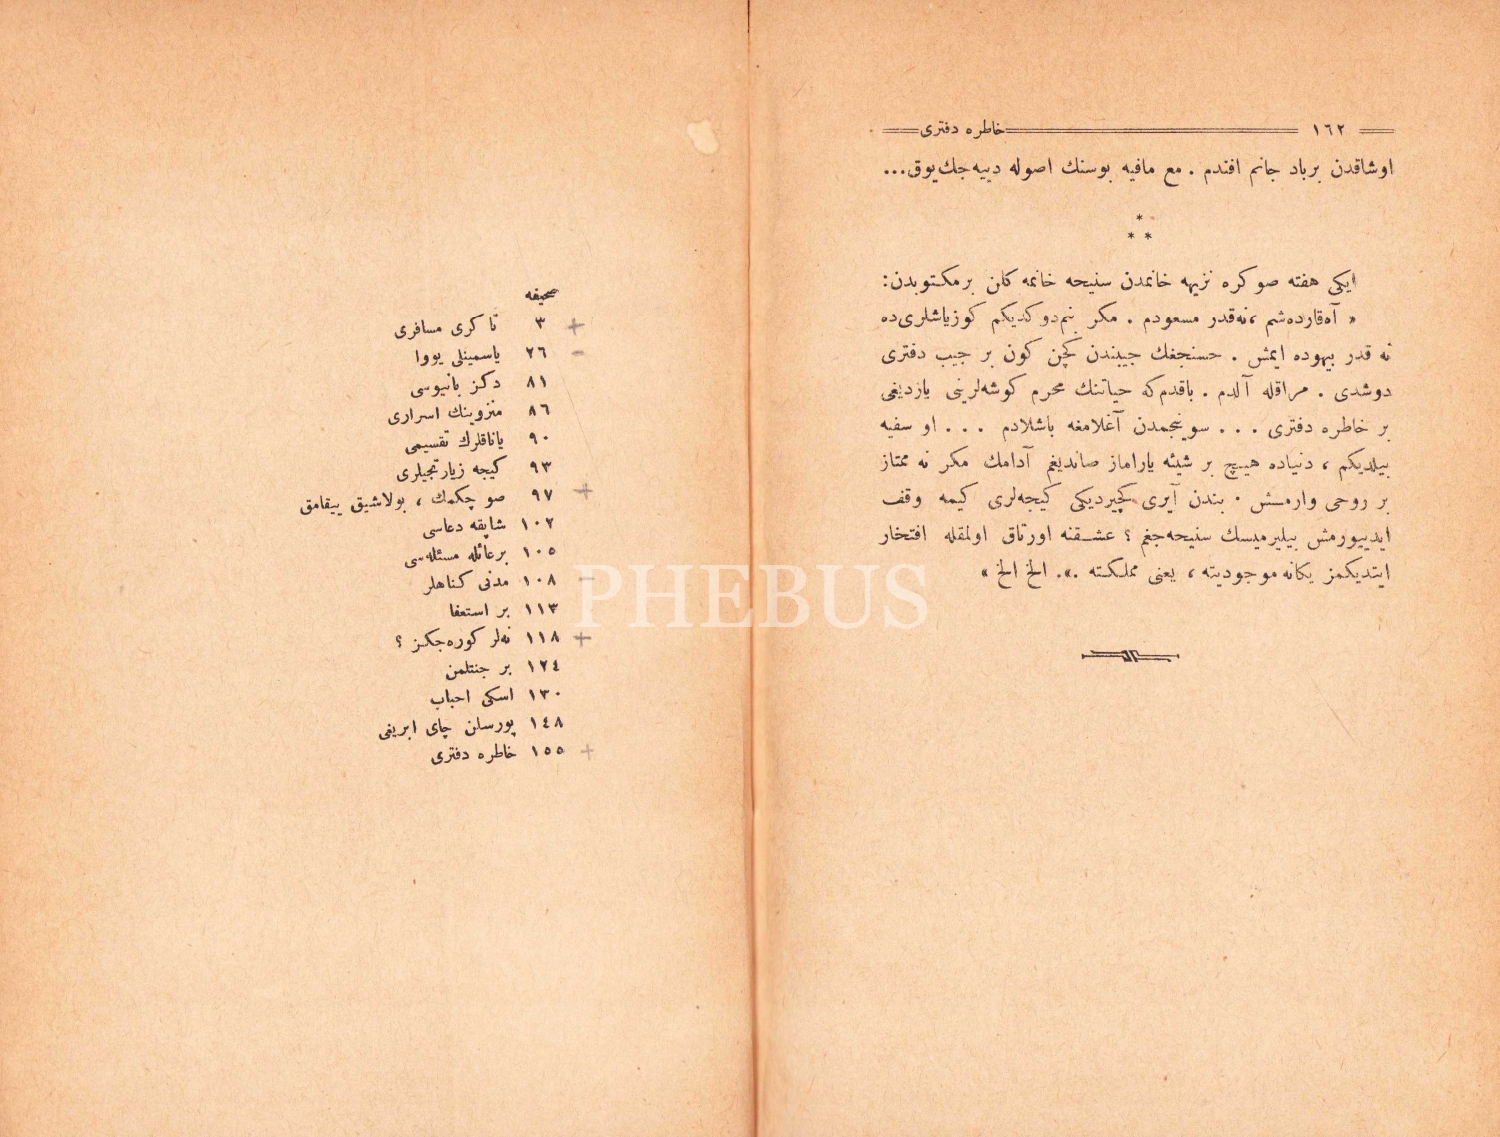 ١٦٢ خاطره دفتری
اوشاقدن برباد جانم افندم . مع مافیه بوسنك اصوله دییه‌جك یوق...
*
* *
ایکی هفته صوکره نزیهه خانمدن سنیحه خانمه کلن برمکتوبدن:
« آه‌قارده‌شم ،نه‌قدر مسعودم . مکر بنم‌دوکدیکم کوزیاشلری‌ده
نه قدر بیهوده ایمش . حسنجغك جیبندن کچن کون بر جیب دفتری
دوشدی . مراقله آلدم . باقدم‌که حیاتنك محرم کوشه‌لرینی یازدیغی
بر خاطره دفتری . . . سوینجمدن آغلامغه باشلادم . . . او سفیه
بیلدیکم ، دنیاده هیچ بر شیئه یاراماز صاندیغم آدامك مکر نه ممتاز
بر روحی وارمش . بندن آیری کچیردیکی کیجه‌لری کیمه وقف
ایدییورمش بیلیرمیسك سنیحه‌جغم ؟ عشقنه اورتاق اولمقله افتخار
ایتدیکمز یکانه موجودیته ، یعنی مملکته .». الخ الخ »
صحیفه
٣ تا کری مسافری
٢٦ یاسمینلی یووا
٨١ دکز بانیوسی
٨٦ منزوینك اسراری
٩٠ یاناقلرك تقسیمی
٩٣ کیجه زیارتجیلری
٩٧ صو چکمك ، بولاشیق ییقامق
١٠٢ شاپقه دعاسی
١٠٥ برعائله مسئله‌سی
١٠٨ مدنی کناهلر
١١٣ بر استعفا
١١٨ نه‌لر کوره‌جکز ؟
١٢٤ بر جنتلمن
١٣٠ اسکی احباب
١٤٨ پورسلن چای ابریغی
١٥٥ خاطره دفتری
PHEBUS